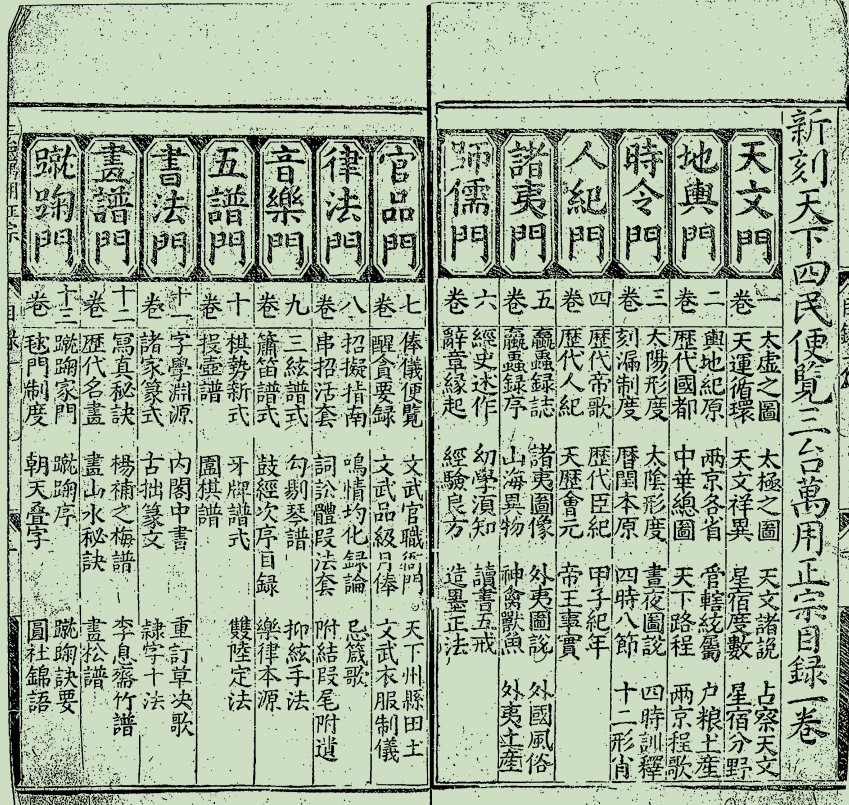 新刻天下四民便覽三台萬用正宗目録一卷
天文門
一卷
太虚之圖 太極之圖 天文諸説 占察天文
天運循環 天文祥異 星宿度數 星宿分野
地輿門
二卷
輿地紀原 兩京各省 管轄統屬 户粮土産
歷代國都 中華總圖 天下路程 兩京程歌
時令門
三卷
太陽形度 太陰形度 晝夜圖説 四時訓釋
刻漏制度 曆閏本原 四時八節 十二形肖
人紀門
四卷
歷代帝歌 歷代臣紀 甲子紀年
歷代人紀 天歷會元 帝王事實
諸夷門
五卷
臝蟲録誌 諸夷圖像 外夷圖説 外國風俗
臝蟲録序 山海異物 神禽獸魚 外夷土産
師儒門
六卷
經史述作 幼學須知 讀書五戒
辭章緣起 經驗良方 造墨正法
官品門
七卷
俸儀便覽 文武官職衙門 天下州縣田土
醒貪要録 文武品級月俸 文武衣服制儀
律法門
八卷
招擬指南 鳴情均化録論 忌箴歌
串招活套 詞訟體段法套 附結段尾附遺
音樂門
九卷
三絃譜式 勾剔琴譜 抑絃手法
簫笛譜式 鼓經次序目録 樂律本源
五譜門
十卷
棋勢新式 牙牌譜式 雙陸定法
投壺譜 圍棋譜
書法門
十一卷
字學淵源 内閣中書 重訂草決歌
諸家篆式 古拙篆文 隷字十法
畫譜門
十二卷
寫真秘訣 楊補之梅譜 李息齋竹譜
歷代名畫 畫山水秘訣 畫松譜
蹴踘門
十三卷
蹴踘家門 蹴踘序 蹴踘訣要
毬門制度 朝天叠字 圓社錦語